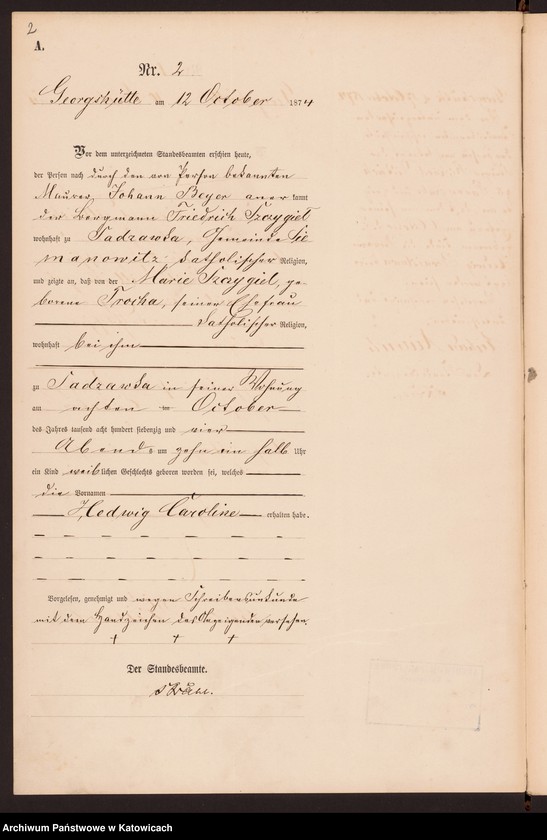 2
A.
Nr. 2
Georgshütte am 12 October 1874
Vor dem unterzeichneten Standesbeamten erschien heute,
der Person nach durch den von Person bekannten
Maurer Johann Beyer aner kannt
der Bergmann Friedrich Szczygiel
wohnhaft zu Sadzawka, Gemeinde Sie
manowitz, katholischer Religion,
und zeigte an, daß von der Marie Szczygiel, ge-
borene Trocha, seiner Ehefrau
katholischer Religion,
wohnhaft bei ihm
zu Sadzawka in seiner Wohnung
am achten October
des Jahres tausend acht hundert siebenzig und vier
Abends um zehn ein halb Uhr
ein Kind weiblichen Geschlechts geboren worden sei, welches
die Vornamen
Hedwig Caroline erhalten habe.
Vorgelesen, genehmigt und wegen Schreibensunkunde
mit dem Handzeichen des Anzeigenden versehen.
+ + +
Der Standesbeamte.
Archiwum Państwowe w Katowicach